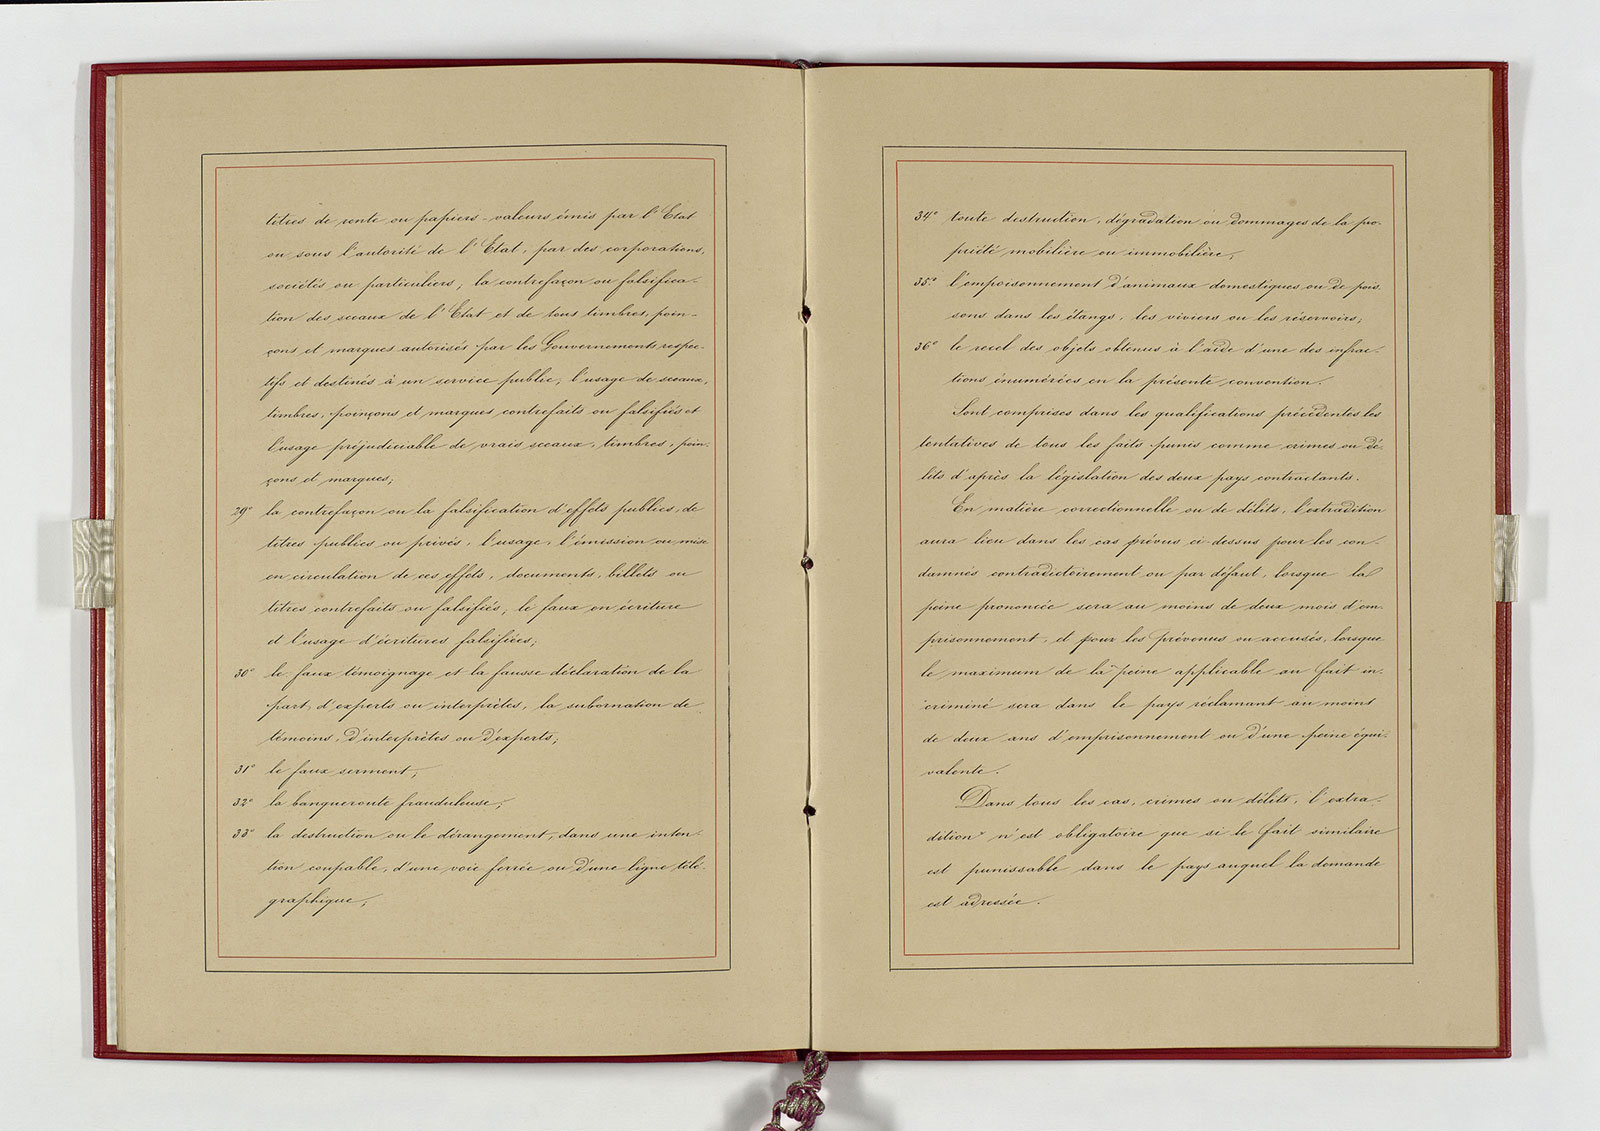 titres de rente ou papiers-valeurs émis par l'Etat
ou sous l'autorité de l'Etat, par des corporations,
sociétés ou particuliers, la contrefaçon ou falsifica-
tion des sceaux de l'Etat et de tous timbres, poin-
çons et marques autorisés par les Gouvernements respec-
tifs et destinés à un service public, l'usage de sceaux,
timbres, poinçons et marques contrefaits ou falsifiés et
l'usage préjudiciable de vrais sceaux, timbres, poin-
çons et marques;
29° la contrefaçon ou la falsification d'effets publics, de
titres publics ou privés, l'usage, l'émission ou mise
en circulation de ces effets, documents, billets ou
titres contrefaits ou falsifiés, le faux en écriture
et l'usage d'écritures falsifiées;
30° le faux témoignage et la fausse déclaration de la
part d'experts ou interprètes, la subornation de
témoins, d'interprètes ou d'experts;
31° le faux serment;
32° la banqueroute frauduleuse;
33° la destruction ou le dérangement, dans une inten-
tion coupable, d'une voie ferrée ou d'une ligne télé-
graphique;
34° toute destruction, dégradation ou dommages de la pro-
priété mobilière ou immobilière;
35° l'empoisonnement d'animaux domestiques ou de pois-
sons dans les étangs, les viviers ou les réservoirs;
36° le recel des objets obtenus à l'aide d'une des infrac-
tions énumérées en la présente convention.
Sont comprises dans les qualifications précédentes les
tentatives de tous les faits punis comme crimes ou dé-
lits d'après la législation des deux pays contractants.
En matière correctionnelle ou de délits, l'extradition
aura lieu dans les cas prévus ci-dessus pour les con-
damnés contradictoirement ou par défaut, lorsque la
peine prononcée sera au moins de deux mois d'em-
prisonnement, et pour les prévenus ou accusés, lorsque
le maximum de la peine applicable au fait in-
criminé sera dans le pays réclamant au moins
de deux ans d'emprisonnement ou d'une peine équi-
valente.
Dans tous les cas, crimes ou délits, l'extra-
dition n'est obligatoire que si le fait similaire
est punissable dans le pays auquel la demande
est adressée.